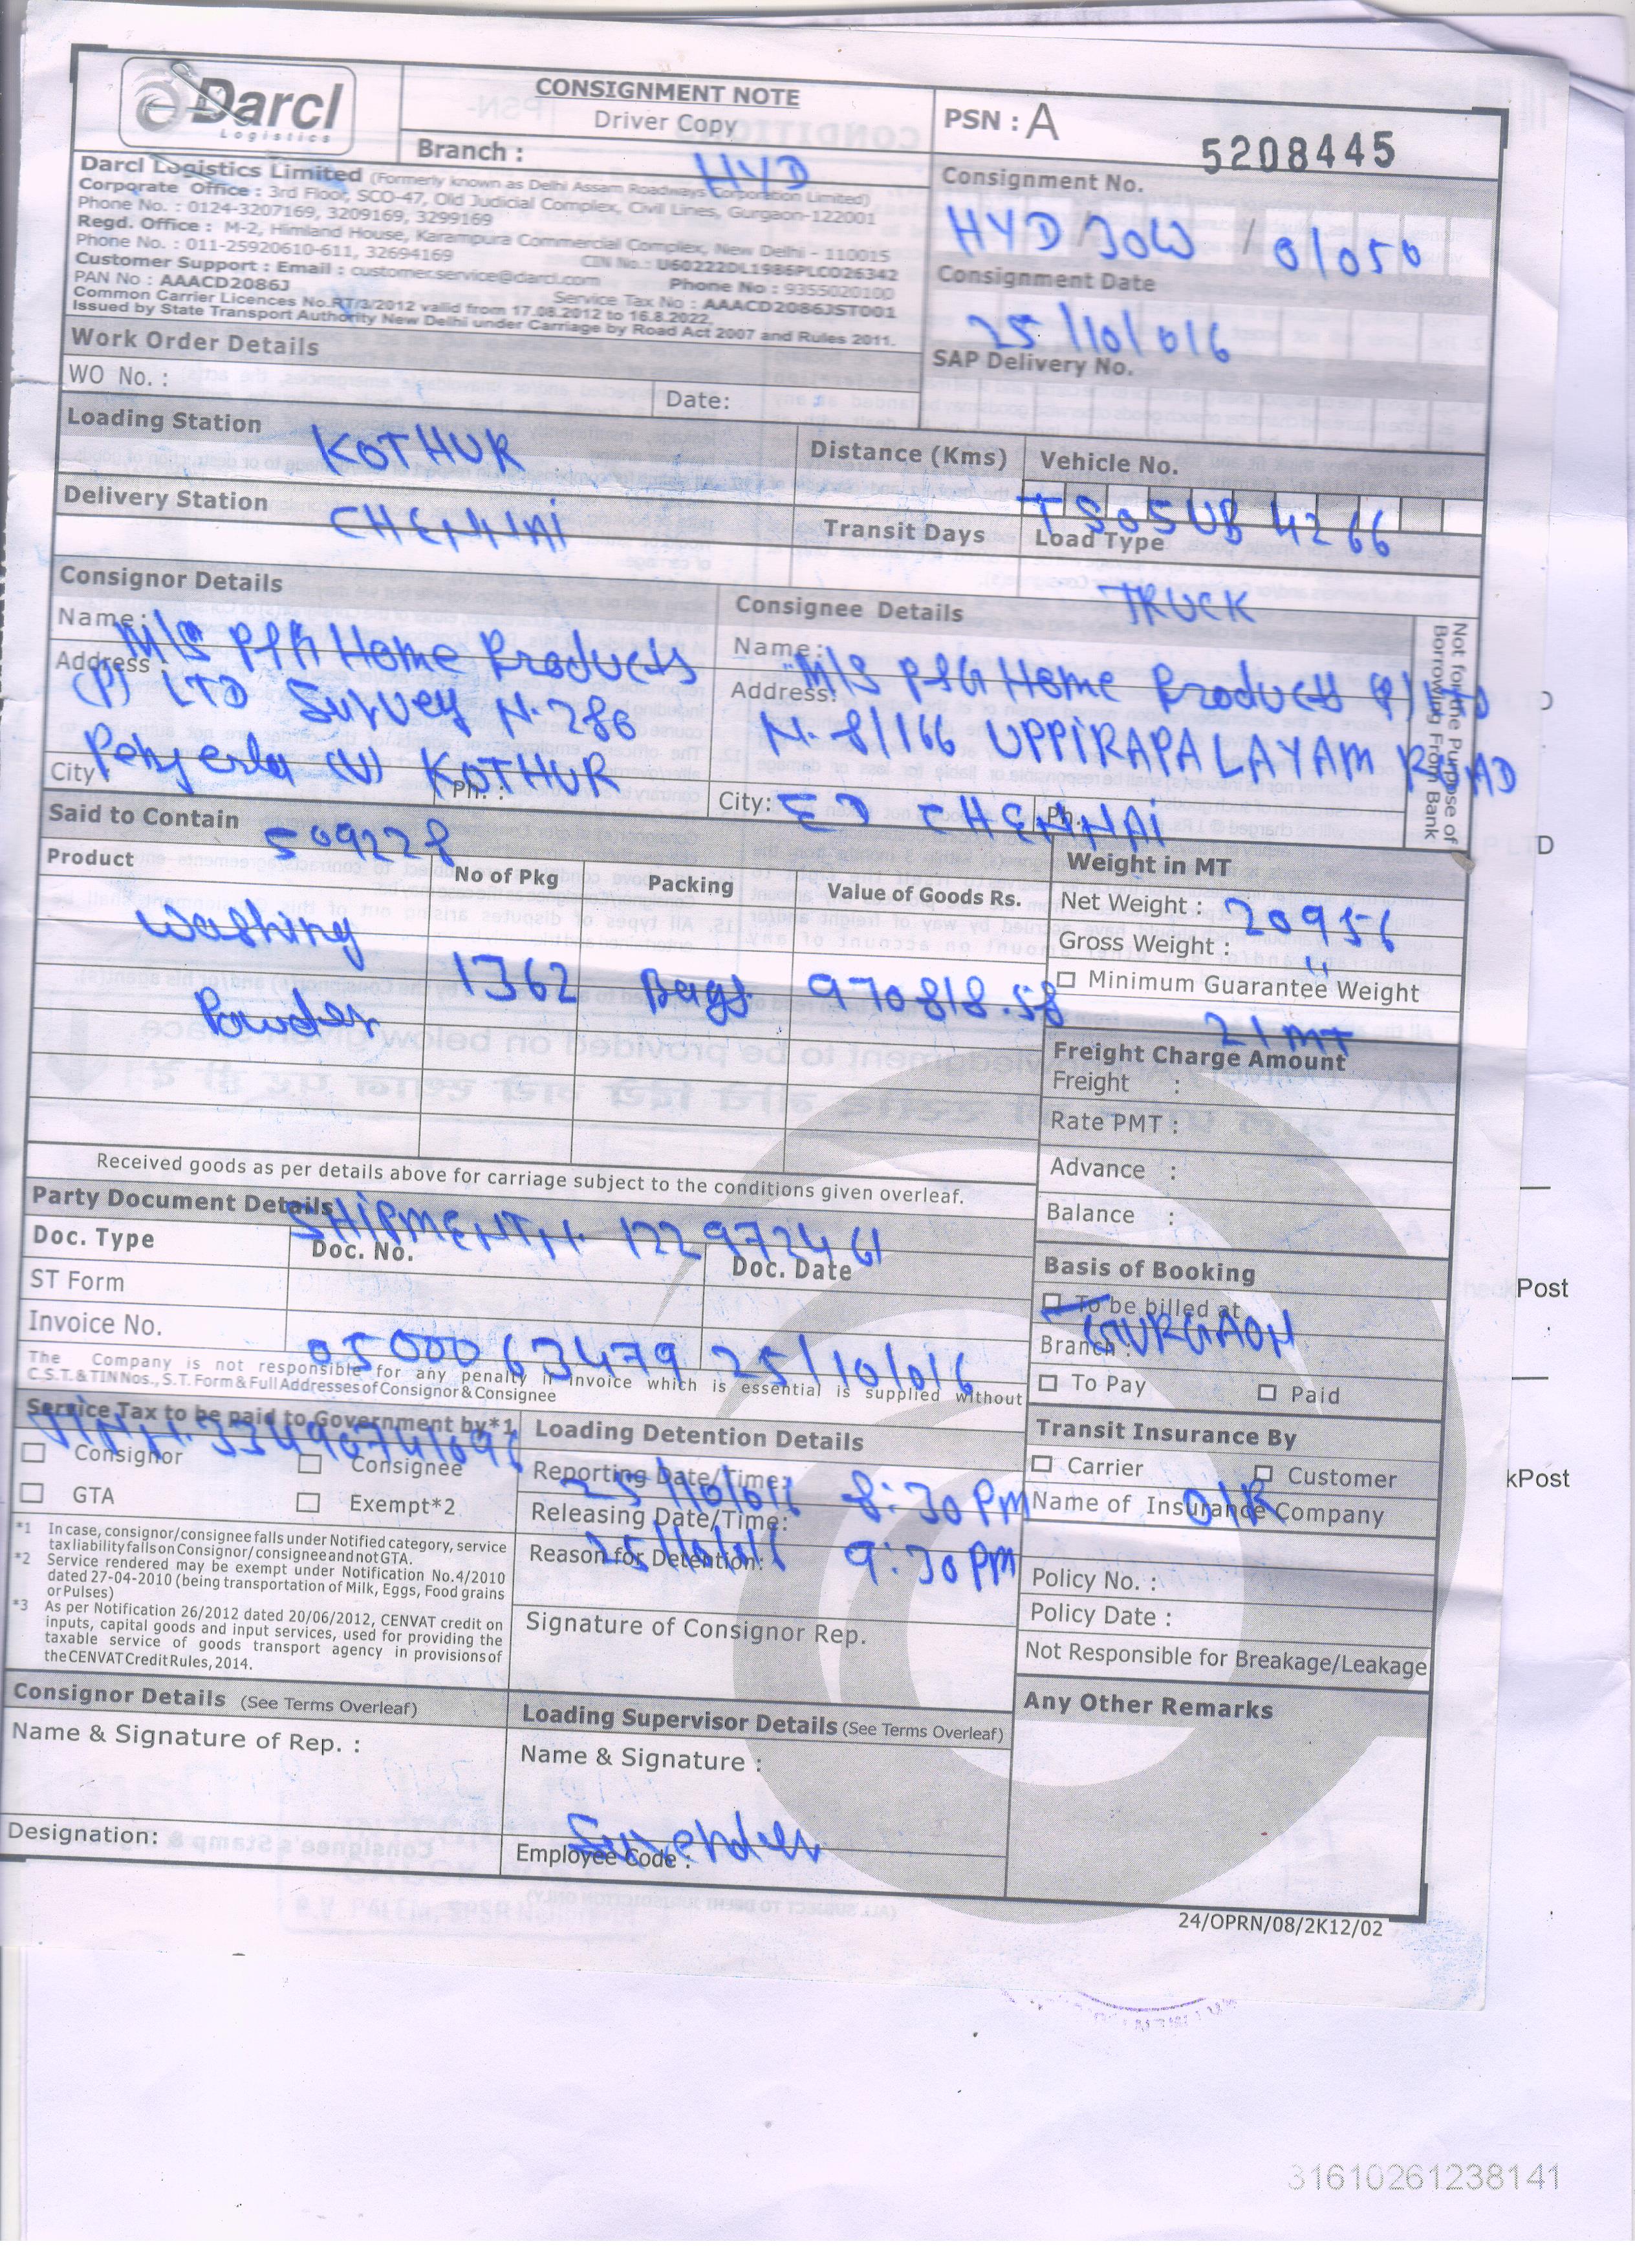 Darcl
Logistics
CONSIGNMENT NOTE
Driver Copy
Branch : HYD
PSN : A 5208445
Darcl Logistics Limited (Formerly known as Delhi Assam Roadways Corporation Limited)
Corporate Office : 3rd Floor, SCO-47, Old Judicial Complex, Civil Lines, Gurgaon-122001
Phone No. : 0124-3207169, 3209169, 3299169
Regd. Office : M-2, Himland House, Karampura Commercial Complex, New Delhi - 110015
Phone No. : 011-25920610-611, 32694169 CIN No.: U60222DL1986PLC026342
Customer Support : Email : customer.service@darcl.com Phone No : 9355020100
PAN No : AAACD2086J Service Tax No : AAACD2086JST001
Common Carrier Licences No.RT/3/2012 valid from 17.08.2012 to 16.8.2022.
Issued by State Transport Authority New Delhi under Carriage by Road Act 2007 and Rules 2011.
Consignment No.
HYD/JOW/01050
Consignment Date
25/10/016
SAP Delivery No.
Work Order Details
WO No. : Date:
Loading Station KOTHUR
Distance (Kms)
Vehicle No.
TS05UB 4266
Delivery Station CHENNAI
Transit Days
Load Type
TRUCK
Consignor Details
Name: M/S P&G Home Products
Address : (P) LTD Survey N. 286
(V) KOTHUR
City : Ph. :
509228
Consignee Details
Name: M/S P&G Home Products P/LTD
Address: N. 8/166 UPPIRAPALAYAM ROAD
City: CHENNAI Ph.
Not for the Purpose of
Borrowing From Bank
Said to Contain
Product No of Pkg Packing Value of Goods Rs.
Washing
Powder 1362 Bags 970818.58
Weight in MT
Net Weight : 20956
Gross Weight : "
Minimum Guarantee Weight
21 MT
Freight Charge Amount
Freight :
Rate PMT :
Advance :
Balance :
Received goods as per details above for carriage subject to the conditions given overleaf.
Party Document Details SHIPMENT N. 122972461
Doc. Type Doc. No. Doc. Date
ST Form
Invoice No. 0500063479 25/10/016
The Company is not responsible for any penalty if invoice which is essential is supplied without
C.S.T.&TIN Nos., S.T. Form & Full Addresses of Consignor & Consignee
Basis of Booking
To be billed at
Branch : GURGAON
To Pay Paid
Service Tax to be paid to Government by*1
Consignor Consignee
GTA Exempt*2
*1 In case, consignor/consignee falls under Notified category, service
tax liability falls on Consignor/consignee and not GTA.
*2 Service rendered may be exempt under Notification No.4/2010
dated 27-04-2010 (being transportation of Milk, Eggs, Food grains
or Pulses)
*3 As per Notification 26/2012 dated 20/06/2012, CENVAT credit on
inputs, capital goods and input services, used for providing the
taxable service of goods transport agency in provisions of
the CENVAT Credit Rules, 2014.
Loading Detention Details
Reporting Date/Time: 25/10/016 8:30 PM
Releasing Date/Time:
Reason for Detention: 25/10/016 9:30 PM
Signature of Consignor Rep.
Transit Insurance By
Carrier Customer
Name of Insurance Company O/R
Policy No. :
Policy Date :
Not Responsible for Breakage/Leakage
Consignor Details (See Terms Overleaf)
Name & Signature of Rep. :
Designation:
Loading Supervisor Details (See Terms Overleaf)
Name & Signature :
Surender
Employee Code :
Any Other Remarks
24/OPRN/08/2K12/02
D
Post
kPost
31610261238141